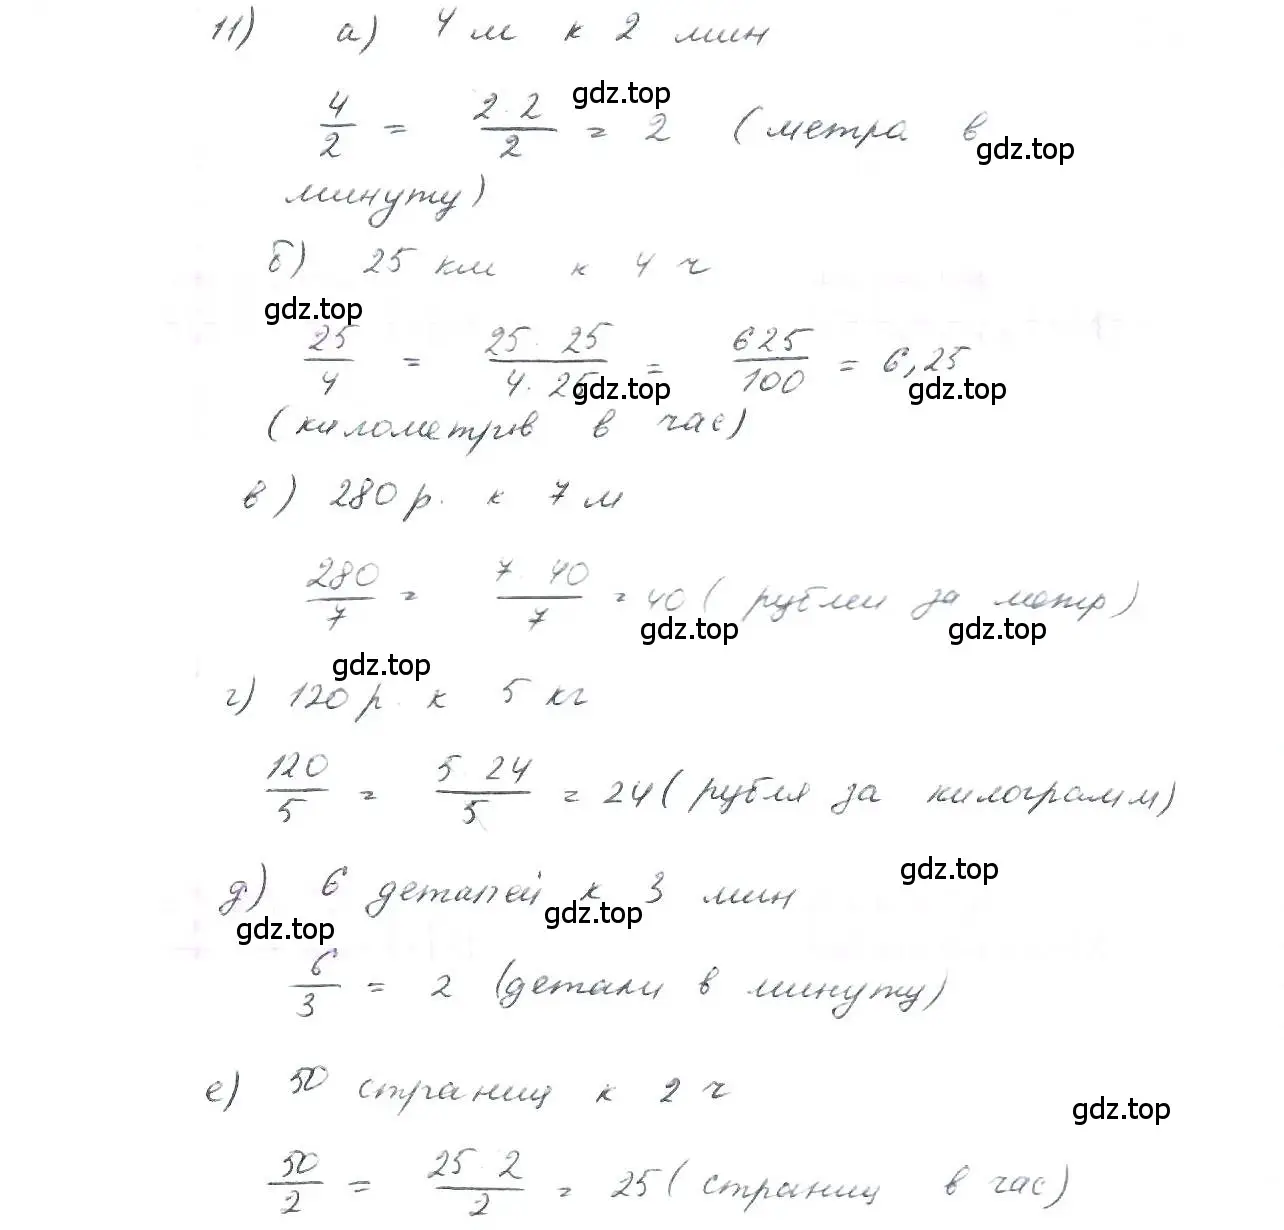 11) а) 4 м к 2 мин
gdz.top
4/2 = 2·2/2 = 2 (метра в
gdz.top
минуту)
б) 25 км к 4 ч
gdz.top
25/4 = 25·25/4·25 = 625/100 = 6,25
gdz.top gdz.top
(километров в час)
в) 280 р. к 7 м
280/7 = 7·40/7 = 40 (рублей за метр)
gdz.top gdz.top
gdz.top
г) 120 р. к 5 кг
120/5 = 5·24/5 = 24 (рубля за килограмм)
gdz.top
д) 6 деталей к 3 мин
gdz.top gdz.top
6/3 = 2 (детали в минуту)
е) 50 страниц к 2 ч
gdz.top
50/2 = 25·2/2 = 25 (страниц в час)